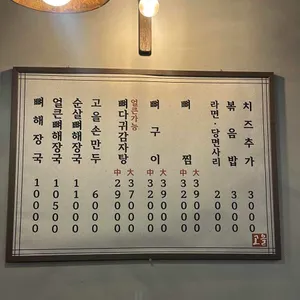 뼈해장국 10000
얼큰뼈해장국 10500
순살뼈해장국 11000
고을손만두 6000
뼈다귀감자탕 中29000
얼큰가능 大37000
뼈구이 中32000 大39000
뼈찜 中32000 大39000
라면·당면사리 2000
볶음밥 3000
치즈추가 3000
고을